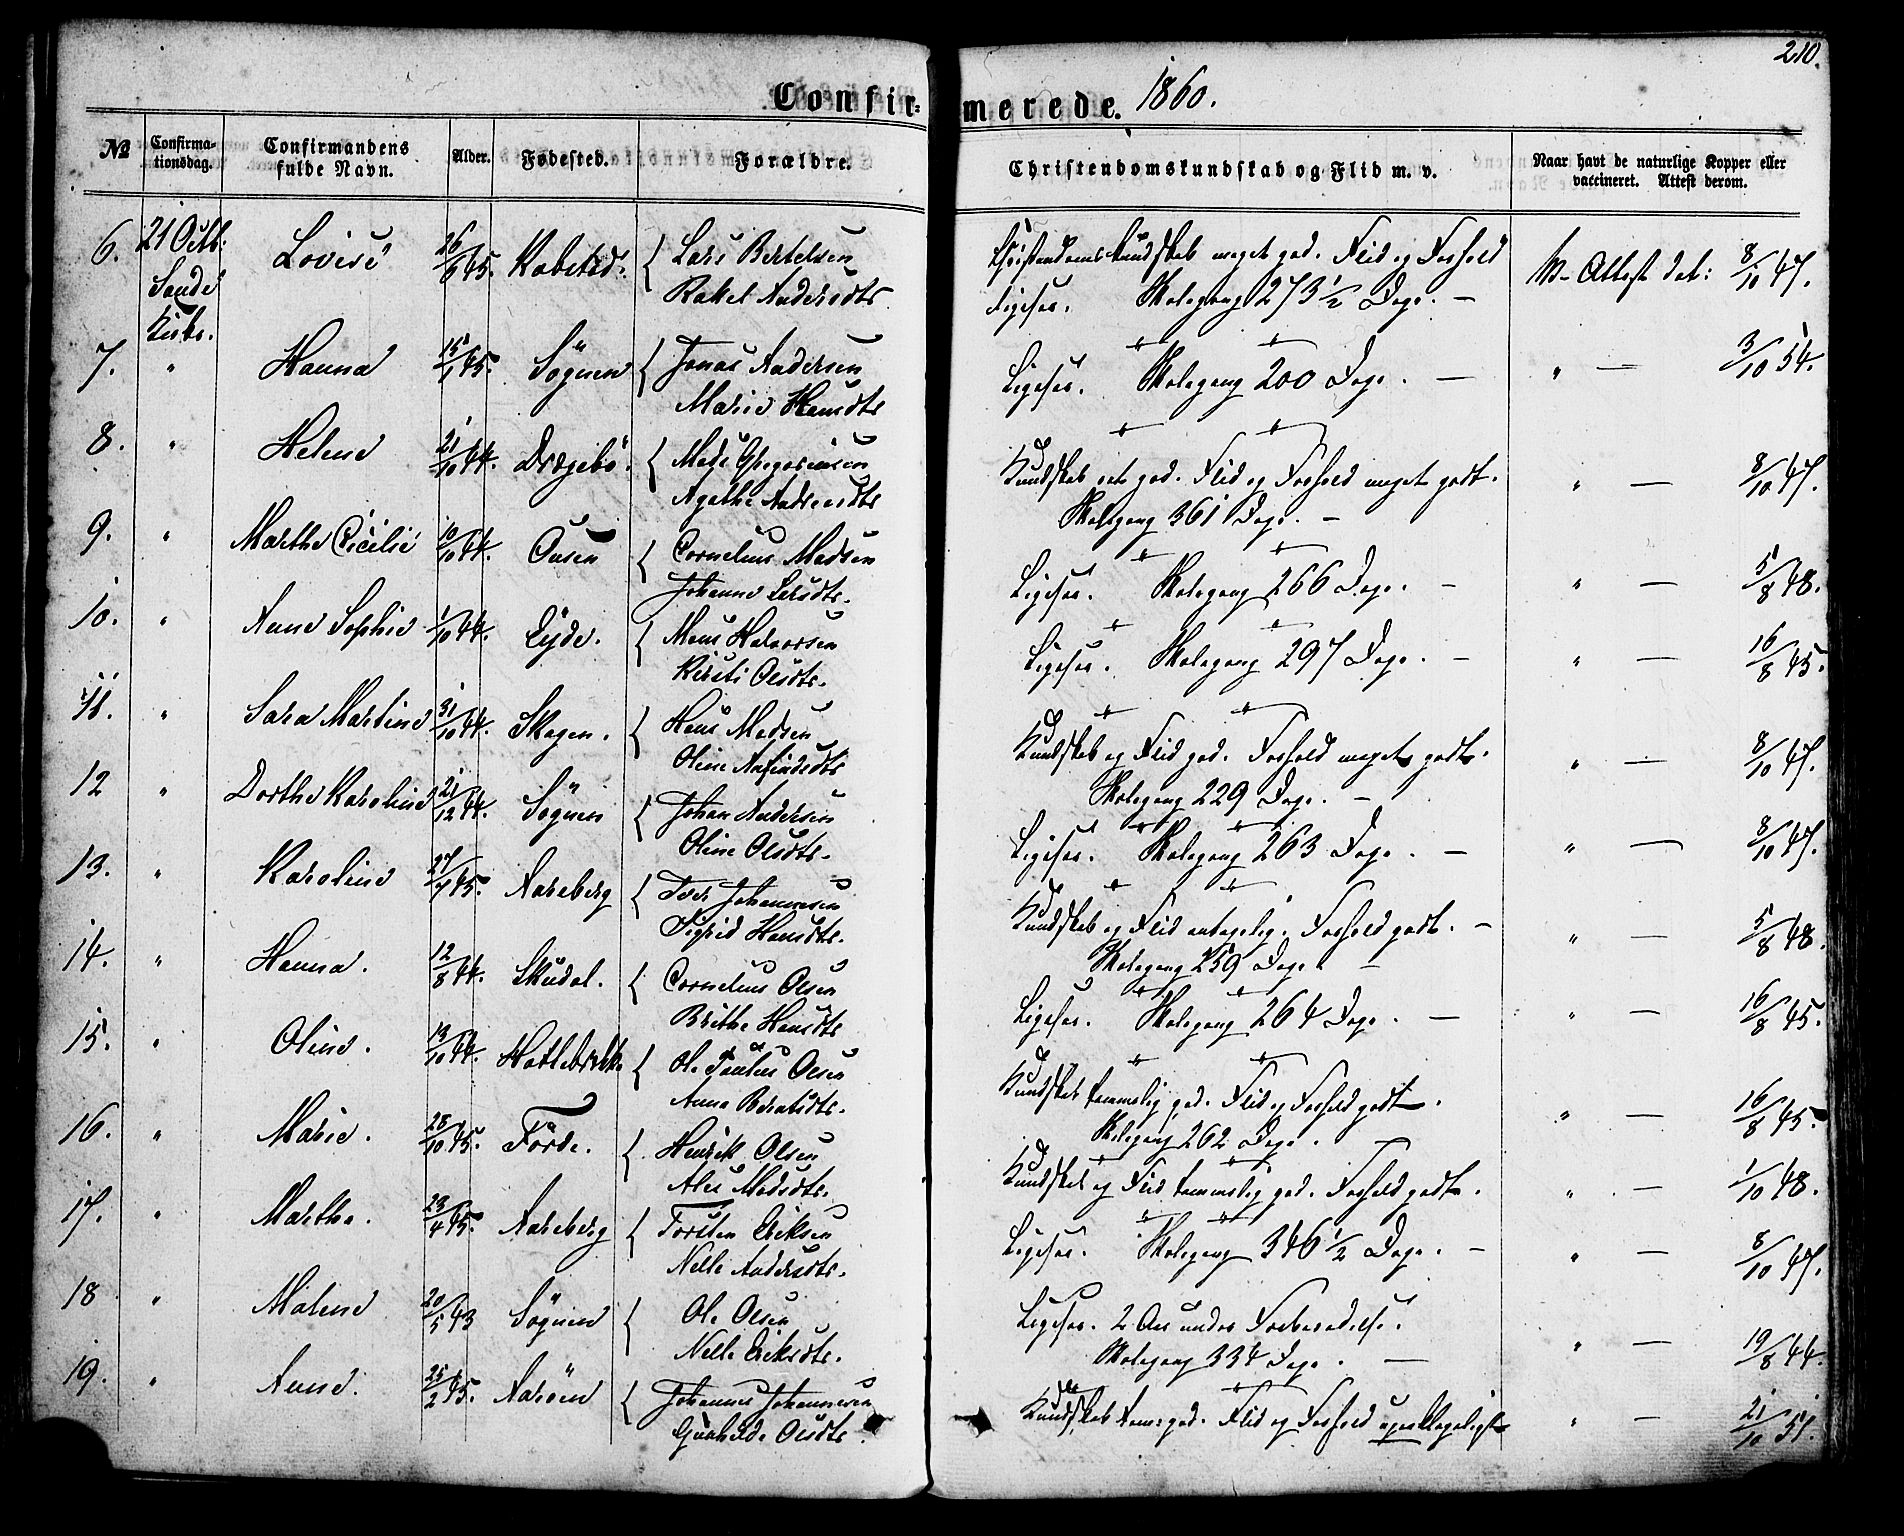 210.
Confirmerede. 1860.
№
Confirmationsdag.
Confirmandens fulde Navn.
Alder.
Fødested.
Forældre.
Christendomskundskab og Flid m. v.
Naar havt de naturlige Kopper eller vaccineret. Attest derom.
6. 21 Octb: Lovise 26/6 45. { Lars Bertelsen Christendomskundskab meget god. Flid og Forhold Attest dat: 8/10 47.
Sande Kirke. Rakel Andersdtr ligesaa. Skolegang 273 1/2 Dage. —
7. " Hanna 15/1 45. Søgnen { Jonas Andersen Ligesaa. Skolegang 200 Dage. — " — 3/10 54.
Marie Hansdtr
8. " Helene 21/10 44. Dragebø. { Mads Gregoriusen Kundskab god. Flid og Forhold meget godt. " — 8/10 47.
Agathe Andreasdtr Skolegang 361 Dage. —
9. " Marthe Cicilie 10/10 44. Ousen { Cornelius Madsen Ligesaa. Skolegang 266 Dage. — " — 5/8 48.
Johanne Larsdtr.
10. " Anne Sophie 1/10 44. Eyde. { Mons Halvorsen Ligesaa. Skolegang 297 Dage. — " — 16/8 45.
Kirsti Olsdtr.
11. " Sara Martine 31/10 44. Skagen. { Hans Madsen Kundskab og Flid god. Forhold meget godt. " — 8/10 47.
Oline Anfindsdtr Skolegang 229 Dage. —
12 " Dorthe Karoline 21/12 44. Søgnen { Johan Andersen Ligesaa. Skolegang 263 Dage. — " — 8/10 47.
Oline Olsdtr.
13. " Karoline 27/4 45. Aareberg { Iver Johannesen Kundskab og Flid antagelig. Forhold godt. — " — 5/8 48.
Sigrid Hansdtr. Skolegang 259 Dage. —
14. " Hanna. 12/8 44. Skudal. { Cornelius Olsen Ligesaa. Skolegang 264 Dage. — " — 16/8 45.
Brithe Hansdtr
15. " Oline. 13/10 44. Hatlebrek. { Ole Paulus Olsen Kundskab temmelig god. Flid og Forhold godt. " — 16/8 45.
Anna Berntsdtr. Skolegang 262 Dage. —
16. " Marie. 28/10 45. Førde. { Henrik Olsen Kundskab og Flid temmelig god. Forhold godt. " — 1/10 48.
Ales Madsdtr.
17. " Marthe. 23/4 45. Aareberg { Torsten Eriksen Ligesaa. Skolegang 346 1/2 Dage. — " — 8/10 47.
Nelle Andersdtr.
18 " Malene 20/5 43 Søgnen { Ole Olsen Ligesaa. 2 Aar under Forberedelse. " — 19/8 44.
Nelle Eriksdtr. Skolegang 334 Dage. —
19. " Anne. 25/2 45. Aarøen { Johannes Johannesen Kundskab tem: god. Flid og Forhold upaaklageligt " — 21/10 51.
Gunhilde Olsdtr.